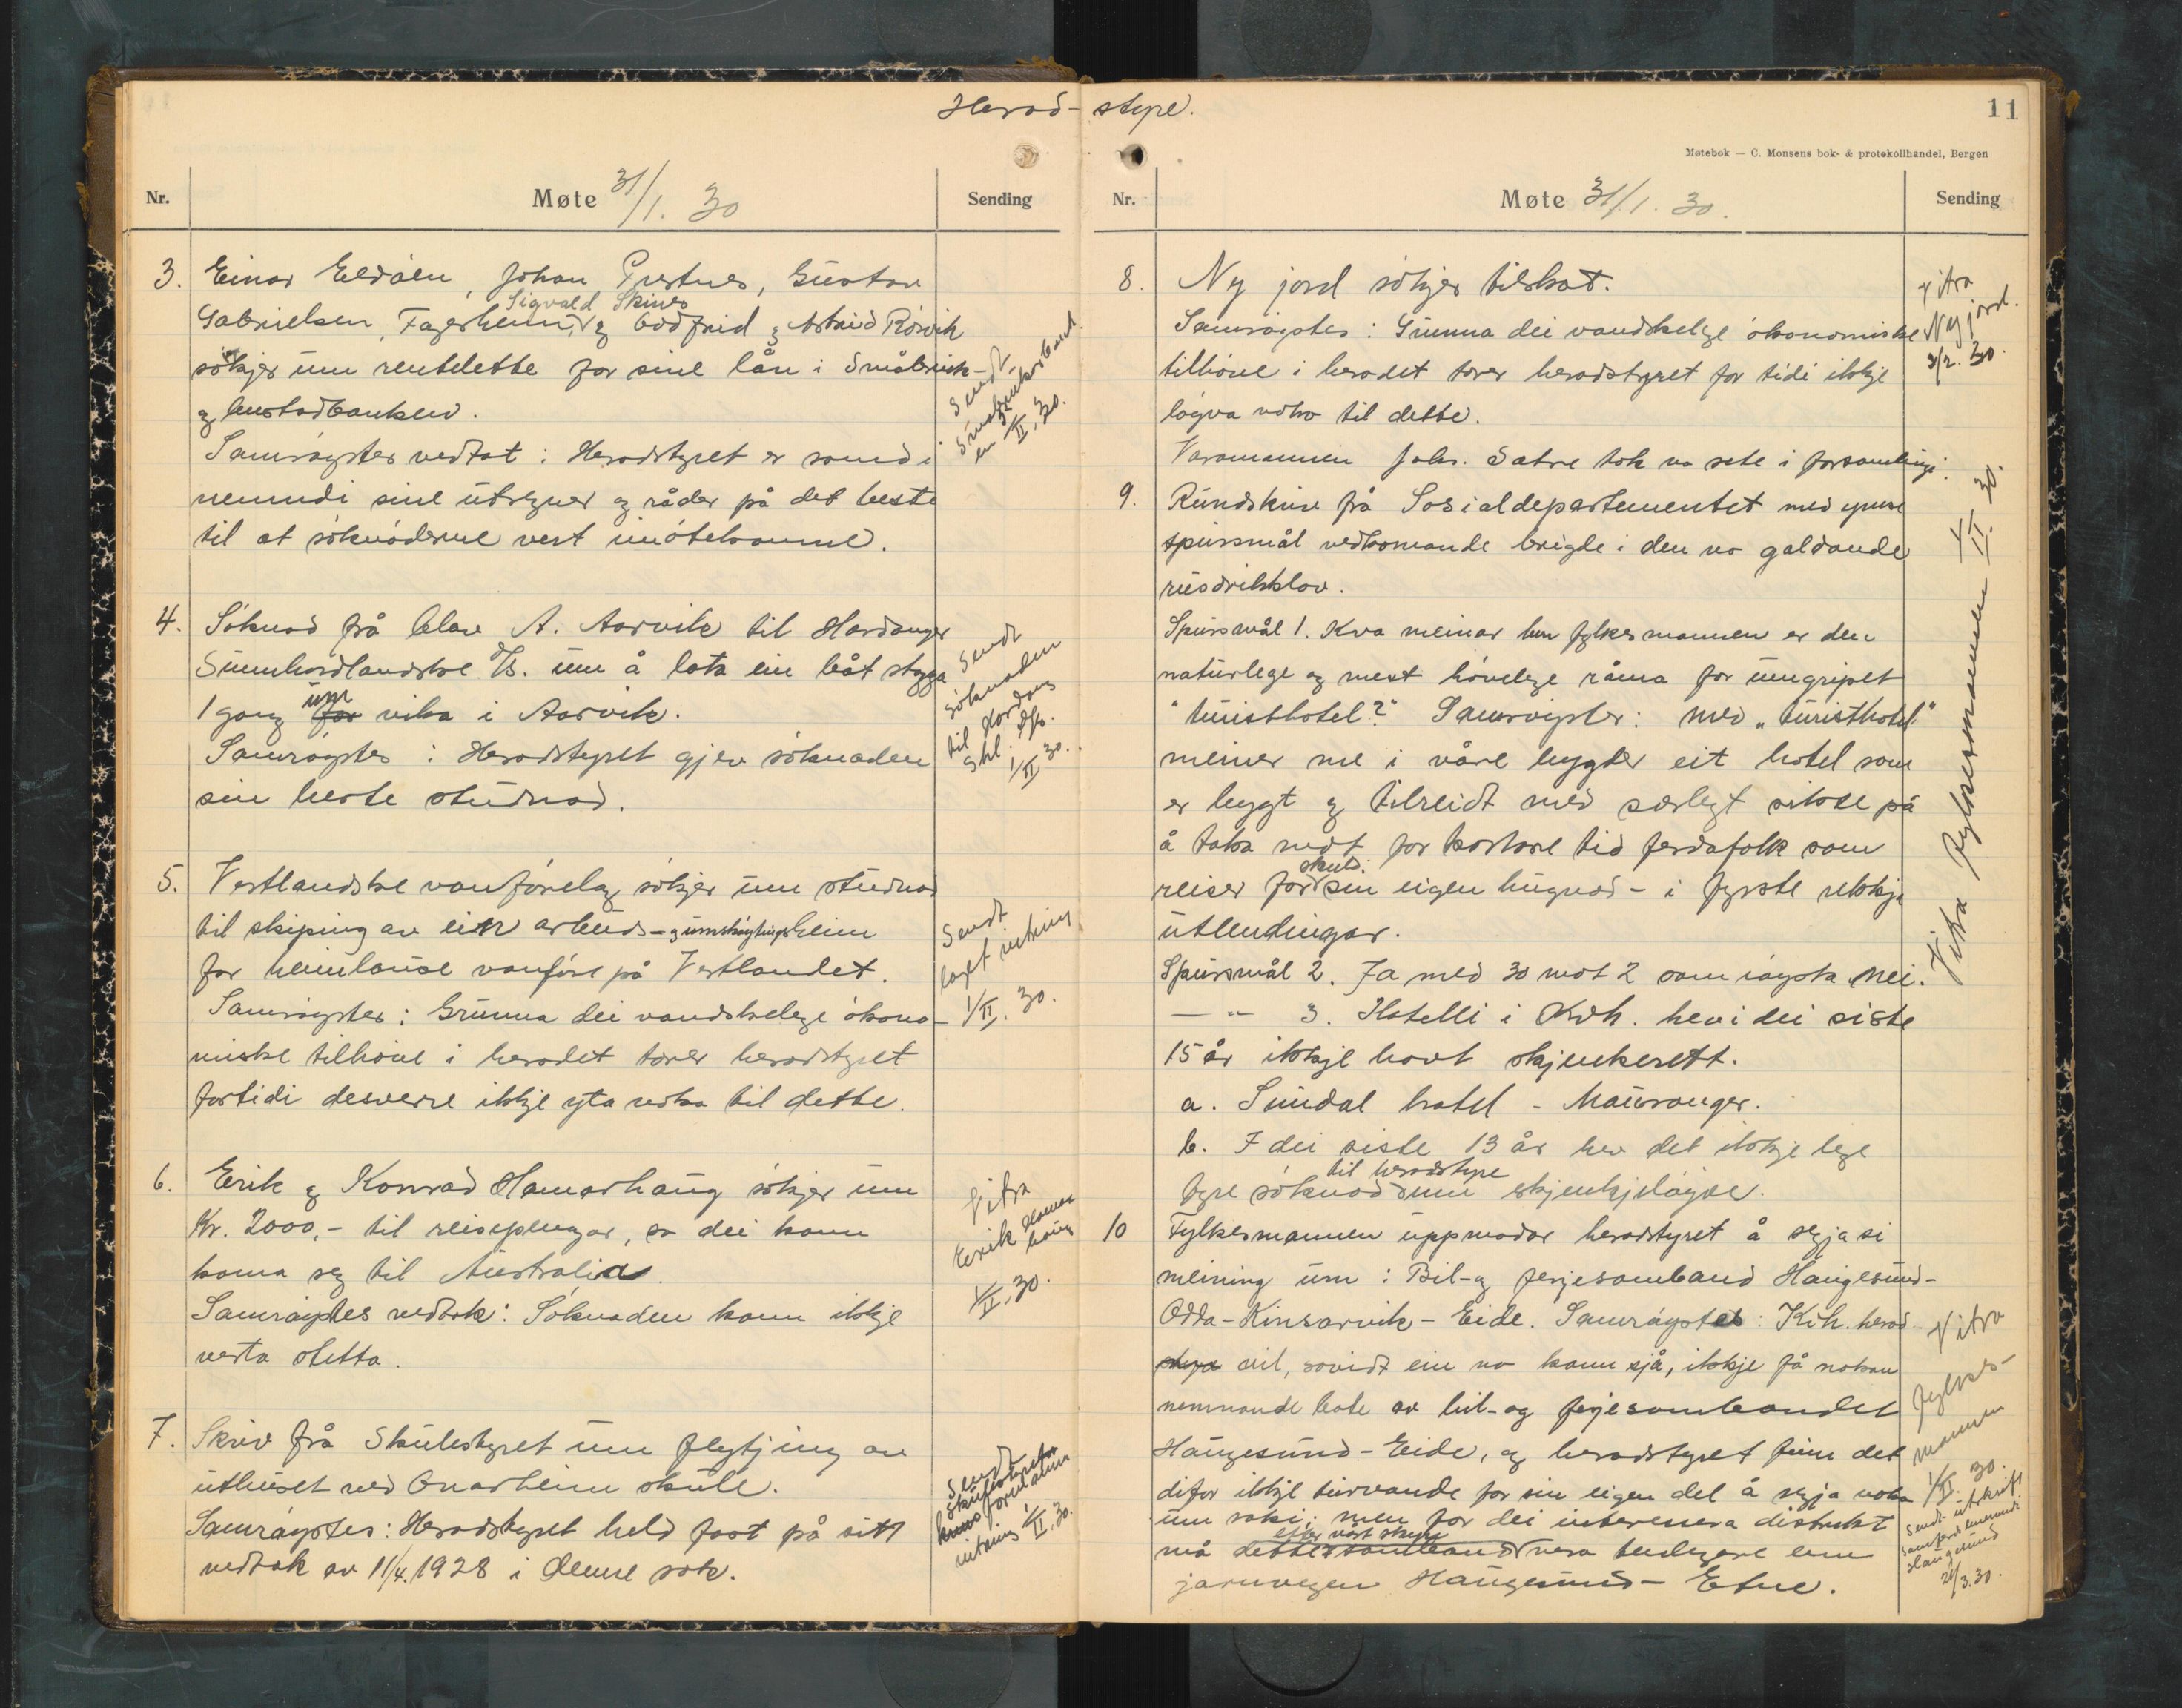 Herad-styre.
Nr.
Møte 31/1. 30
Sending
3. Einar Eldøen, Johan Prestnes, Gustav
Sigvald Skines
Gabrielsen, Fagerheim, og Godfrid og Astrid Rörvik
sökjer um rentelette for sine lån i Småbruk-
og bustadbanken.
Samröystes vedtat: Heradstyret er samd i
nemndi sine utrgner og råder på det beste
til at söknöderne vert imötekomne.
Sendt
Småbrukarbank
en 1/II, 30.
4. Söknad frå Olav A. Aarvik til Hardanger
Sunnhordlandske D/S. um å lata ein båt stogga
um
1 gong for vika i Aarvik.
Samröystes: Heradstyret gjev söknaden
sin beste studnad.
Sendt
söknaden
til Hardang
Shl. Dfs.
1/II 30.
5. Vestlandske vanförelag sökjer um studnad
til skiping av ein arbeids- og umskulingsheim
for heimlause vanföre på Vestlandet.
Samröystes: Grunna dei vandskelege ökono-
miske tilhöve i heradet torer heradstyret
for tidi desverre ikkje yta noka til dette.
Sendt
laget vitring
1/II, 30.
6. Erik og Konrad Hamarhaug sökjer um
Kr. 2000,- til reisepengar, so dei kann
koma seg til Australia.
Samröystes vedtok: Söknaden kann ikkje
verta stetta.
Vitra
Erik Hamar
haug
1/II, 30.
7. Skriv frå Skulestyret um flytjing av
uthuset ved Onarheim skule.
Samröystes: Heradstyret held fast på sitt
vedtak av 11/4. 1928 i denne sak.
Sendt
skulestyret
formann
vitring 1/II, 30.
11
Møtebok — C. Monsens bok- & protokollhandel, Bergen
Nr.
Møte 31/1. 30.
Sending
8. Ny jord sökjer tilskot.
Samröystes: Grunna dei vandskelege ökonomiske
tilhöve i heradet torer heradstyret for tidi ikkje
löyva noko til dette.
Varamannen Johs. Sætre tok no sete i forsamlingi.
Vitra
Ny jord.
3/2. 30.
9. Rundskriv frå Sosialdepartementet med ymse
spursmål vedkomande brigde i den no galdande
rusdrikklov.
Spursmål 1. Kva meinar herr fylkesmannen er den
naturlege og mest hövelege råma for umgripet
"turisthotel?" Samröystes: med "turisthotel"
meiner me i våre bygder eit hotel som
er bygt og tilreidt med særlegt siktee på
å taka mot for kortare tid ferdafolk som
skuld
reiser for sin eigen hugnad - i fyrste rekkje
utlendingar.
Spursmål 2. Ja med 30 mot 2 som röysta nei.
— " — 3. Hotelli i Kvh. hev i dei siste
15 år ikkje havt skjenkerett.
a. Sundal hotel - Mauranger.
b. I dei siste 13 år hev det ikkje lege
til heradstyre
fyre söknad um skjenkjelöyve.
Vitra fylkesmannen 1/II. 30.
10 Fylkesmannen uppmodar heradstyret å segja si
meining um: Bil- og ferjesamband Haugesund-
Odda-Kinsarvik-Eide. Samröystes: Kvh. herad
styre vil, sovidt ein no kann sjå, ikkje få nokon
nemnande bate av bil- og ferjesambandet
Haugesund-Eide, og heradstyret finn det
difor ikkje turvande for sin eigen del å segja noka
um saki; men for dei interessera distrikt
efter vårt skyn
må dette samband vera tenlegare enn
jarnvegen Haugesund-Etne.
Vitra
fylkes-
mannen
1/II. 30.
Sendt utskrift
samferdsnemndi
Haugesund
21/3. 30.